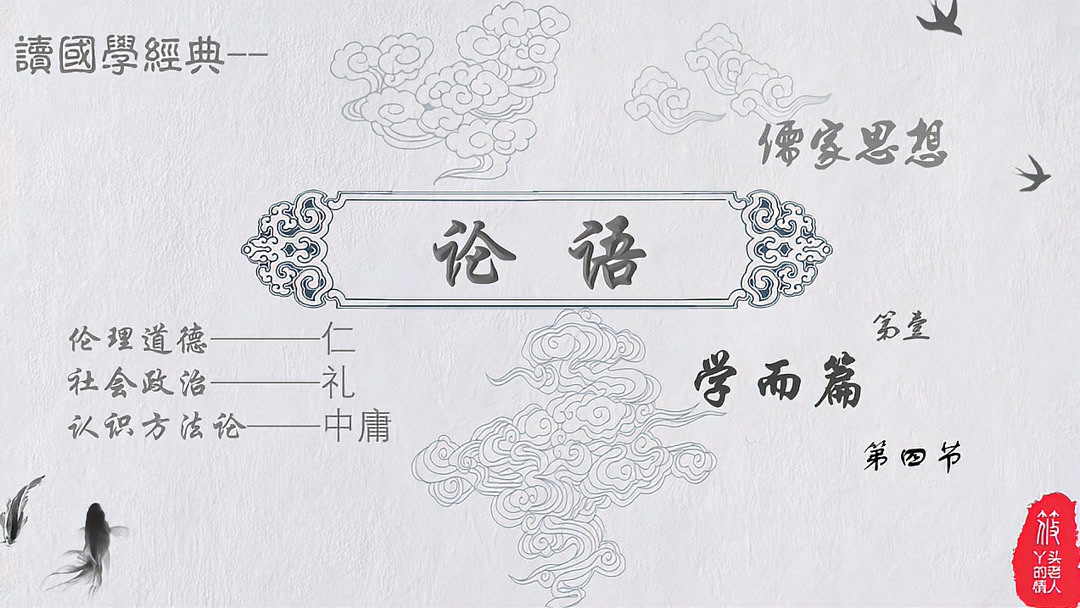 讀國學經典--
儒家思想
论语
伦理道德———仁
社会政治———礼
认识方法论——中庸
第壹
学而篇
第四节
筱
丫头老人的情